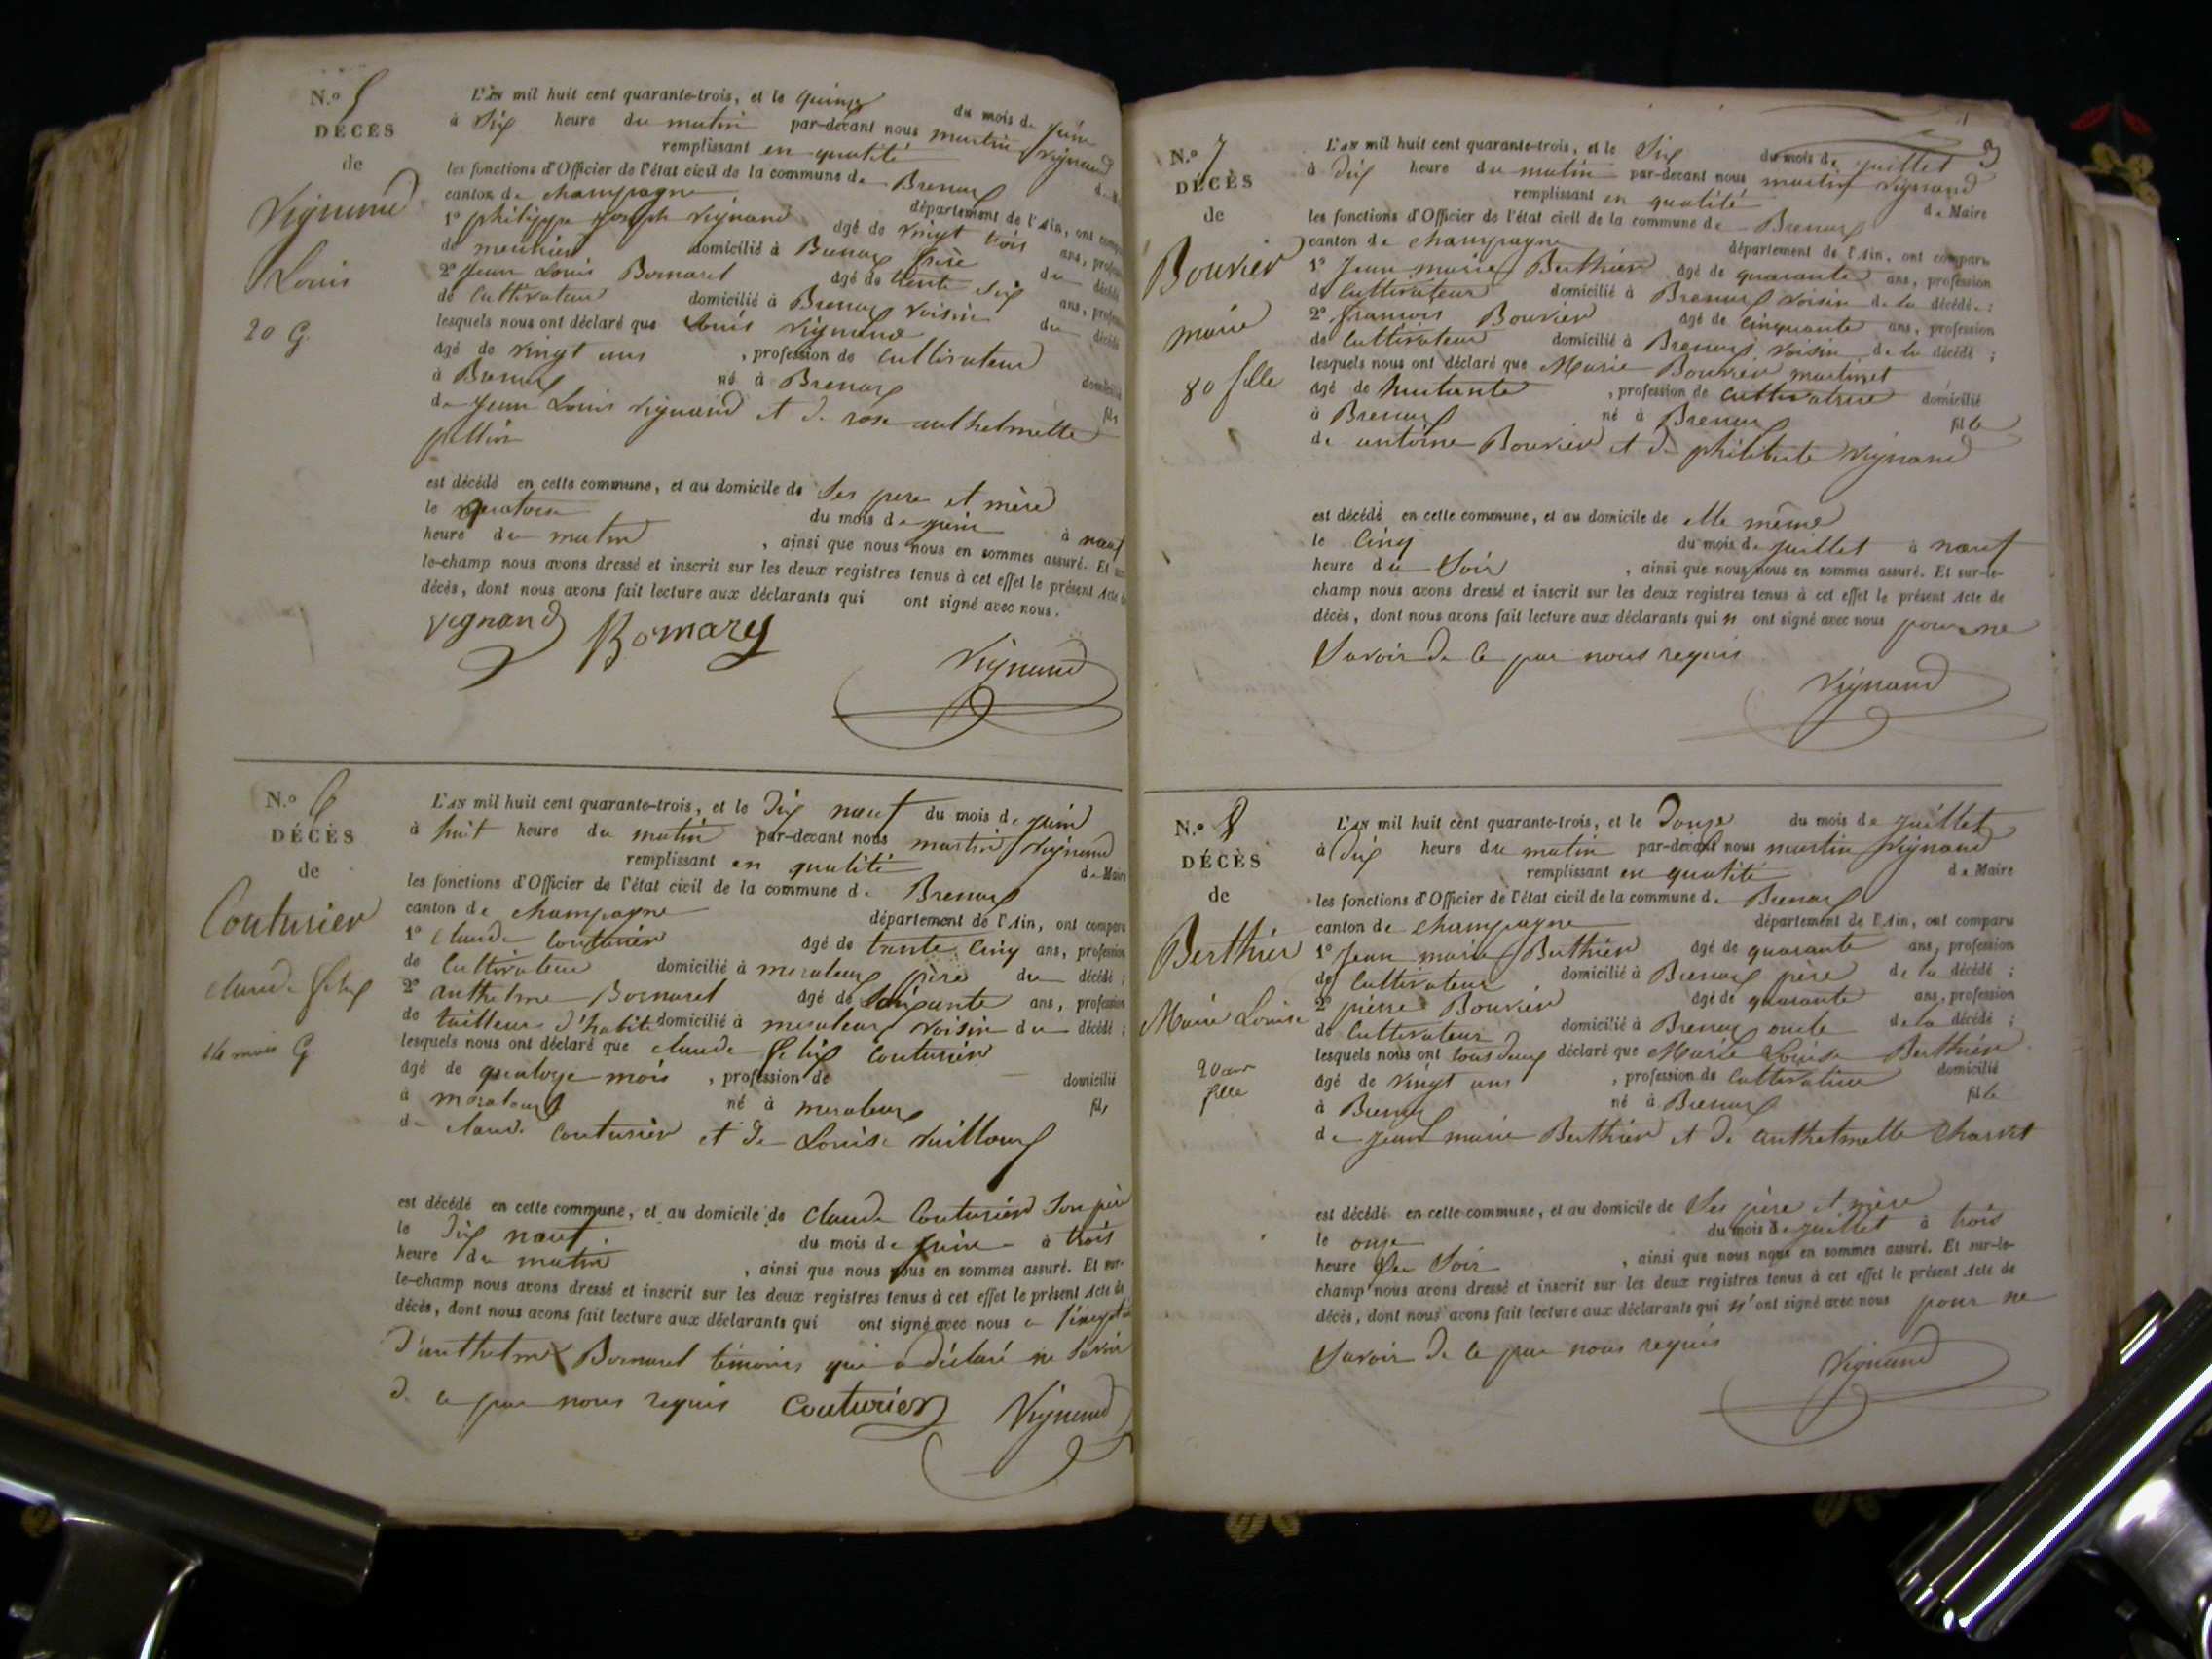 N.o 5
DÉCÈS
de
Vignand
Louis
20 G.
L'AN mil huit cent quarante-trois, et le quinze du mois de juin
à Six heure du matin par-devant nous martin Vignand
remplissant en qualité de
les fonctions d'Officier de l'état civil de la commune de Brenaz
canton de champagne département de l'Ain, ont
1o philippe joseph Vignand âgé de vingt trois ans,
de meunier domicilié à Brenaz frère du décédé
2o Jean Louis Bornarel âgé de trente six ans,
de Cultivateur domicilié à Brenaz voisin du décédé
lesquels nous ont déclaré que Louis Vignand
âgé de vingt ans , profession de cultivateur domicilié
à Brenaz né à Brenaz fils
de Jean Louis Vignand et de rose anthelmette
est décédé en cette commune, et au domicile de Ses pere et mère
le quatorze du mois de juin à nœuf
heure du matin , ainsi que nous nous en sommes assuré. Et
le-champ nous avons dressé et inscrit sur les deux registres tenus à cet effet le présent Acte de
décès, dont nous avons fait lecture aux déclarants qui ont signé avec nous.
vignand
Vignand
N.o 6
DÉCÈS
de
Couturier
claude felix
14 mois G
L'AN mil huit cent quarante-trois, et le Dix nœuf du mois de juin
à huit heure du matin par-devant nous martin Vignand
remplissant en qualité de Maire
les fonctions d'Officier de l'état civil de la commune de Brenaz
canton de champagne département de l'Ain, ont comparu
1o Claude Couturier âgé de trente Cinq ans, profession
de Cultivateur domicilié à meraleaz père du décédé ;
2o anthelme Bornarel âgé de Soixante ans, profession
de tailleur d'habit domicilié à meraleaz voisin du décédé ;
lesquels nous ont déclaré que claude felix Couturier
âgé de quatoze mois , profession de — domicilié
à meraleaz né à meraleaz fils
de claude Couturier et de Louise Vuillouz
est décédé en cette commune, et au domicile de Claude Couturier Son père
le Dix nœuf du mois de juin à trois
heure du matin , ainsi que nous nous en sommes assuré. Et sur-
le-champ nous avons dressé et inscrit sur les deux registres tenus à cet effet le présent Acte de
décès, dont nous avons fait lecture aux déclarants qui ont signé avec nous a
D'anthelme Bornarel témoins qui a déclaré ne Savoir
de ce par nous requis Couturier Vignand
3
N.o 7
DÉCÈS
de
Bouvier
marie
80 fille
L'AN mil huit cent quarante-trois, et le Six du mois de juillet
à Dix heure du matin par-devant nous martin Vignand
remplissant en qualité de Maire
les fonctions d'Officier de l'état civil de la commune de Brenaz
canton de champagne département de l'Ain, ont comparu
1o Jean marie Berthier âgé de quarante ans, profession
de Cultivateur domicilié à Brenaz voisin de la décédé ;
2o francois Bouvier âgé de cinquante ans, profession
de Cultivateur domicilié à Brenaz voisin de la décédé ;
lesquels nous ont déclaré que Marie Bouvier martinet
âgé de huitante , profession de cultivatrice domicilié
à Brenaz né à Brenaz fille
de antoine Bouvier et de philiberte Vignand
est décédé en cette commune, et au domicile de elle même
le Cinq du mois de juillet à nœuf
heure du Soir , ainsi que nous nous en sommes assuré. Et sur-le-
champ nous avons dressé et inscrit sur les deux registres tenus à cet effet le présent Acte de
décès, dont nous avons fait lecture aux déclarants qui n ont signé avec nous pour ne
Savoir de Ce par nous requis
Vignand
N.o 8
DÉCÈS
de
Berthier
Marie Louise
20 ans
fille
L'AN mil huit cent quarante-trois, et le Douze du mois de juillet
à Dix heure du matin par-devant nous martin Vignand
remplissant en qualité de Maire
les fonctions d'Officier de l'état civil de la commune de Brenaz
canton de champagne département de l'Ain, ont comparu
1o Jean marie Berthier âgé de quarante ans, profession
de Cultivateur domicilié à Brenaz père de la décédé ;
2o pierre Bouvier âgé de quarante ans, profession
de Cultivateur domicilié à Brenaz oncle de la décédé ;
lesquels nous ont tous deux déclaré que Marie Louise Berthier
âgé de vingt ans , profession de Cultivatrice domicilié
à Brenaz né à Brenaz fille
de jean marie Berthier et de anthelmette Charvet
est décédé en cette commune, et au domicile de Ses père et mère
le onze du mois de juillet à trois
heure du Soir , ainsi que nous nous en sommes assuré. Et sur-le-
champ nous avons dressé et inscrit sur les deux registres tenus à cet effet le présent Acte de
décès, dont nous avons fait lecture aux déclarants qui n'ont signé avec nous pour ne
Savoir de Ce par nous requis
Vignand